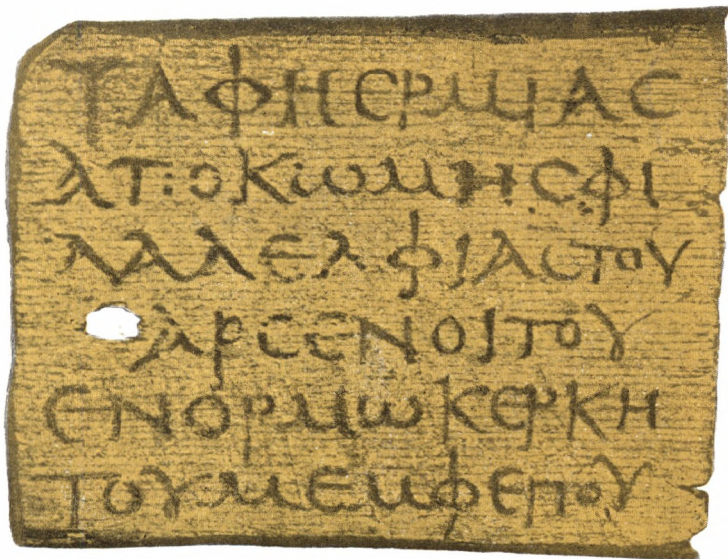 ΤΑΦΗΕΡΜΙΑϹ
ΑΠΟΚΩΜΗϹΦΙ
ΛΑΔΕΛΦΙΑϹΤΟΥ
ΑΡϹΕΝΟΙΤΟΥ
ΕΝΟΡΜΩΚΕΡΚΗ
ΤΟΥΜΕΜΦΕΠΟΥ